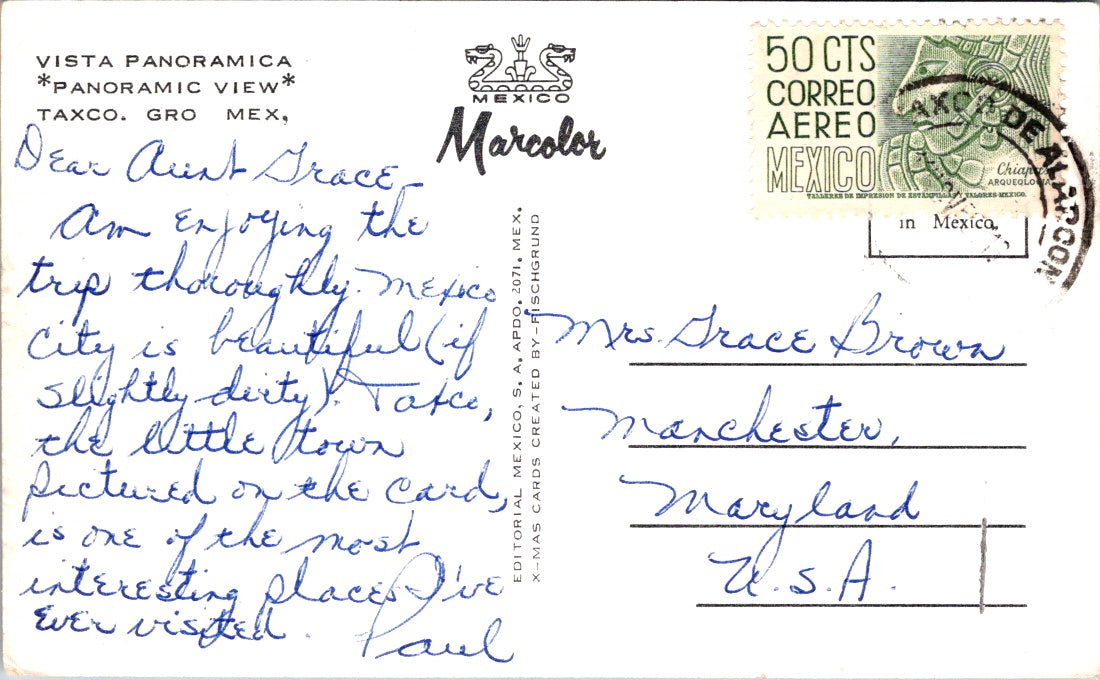 VISTA PANORAMICA
*PANORAMIC VIEW*
TAXCO. GRO MEX,
MEXICO
Marcolor
50 CTS
CORREO
AEREO
MEXICO
Chiapas
ARQUEOLOGIA
TALLERES DE IMPRESION DE ESTAMPILLAS Y VALORES-MEXICO.
AXCO DE ALARCON
in Mexico.
Dear Aunt Grace,
Am enjoying the
trip thoroughly. Mexico
City is beautiful (if
slightly dirty). Taxco,
the little town
pictured on the card,
is one of the most
interesting places I've
ever visited.
Paul
EDITORIAL MEXICO, S. A. APDO. 2071. MEX.
X-MAS CARDS CREATED BY-FISCHGRUND
Mrs. Grace Brown
Manchester,
Maryland
U.S.A.